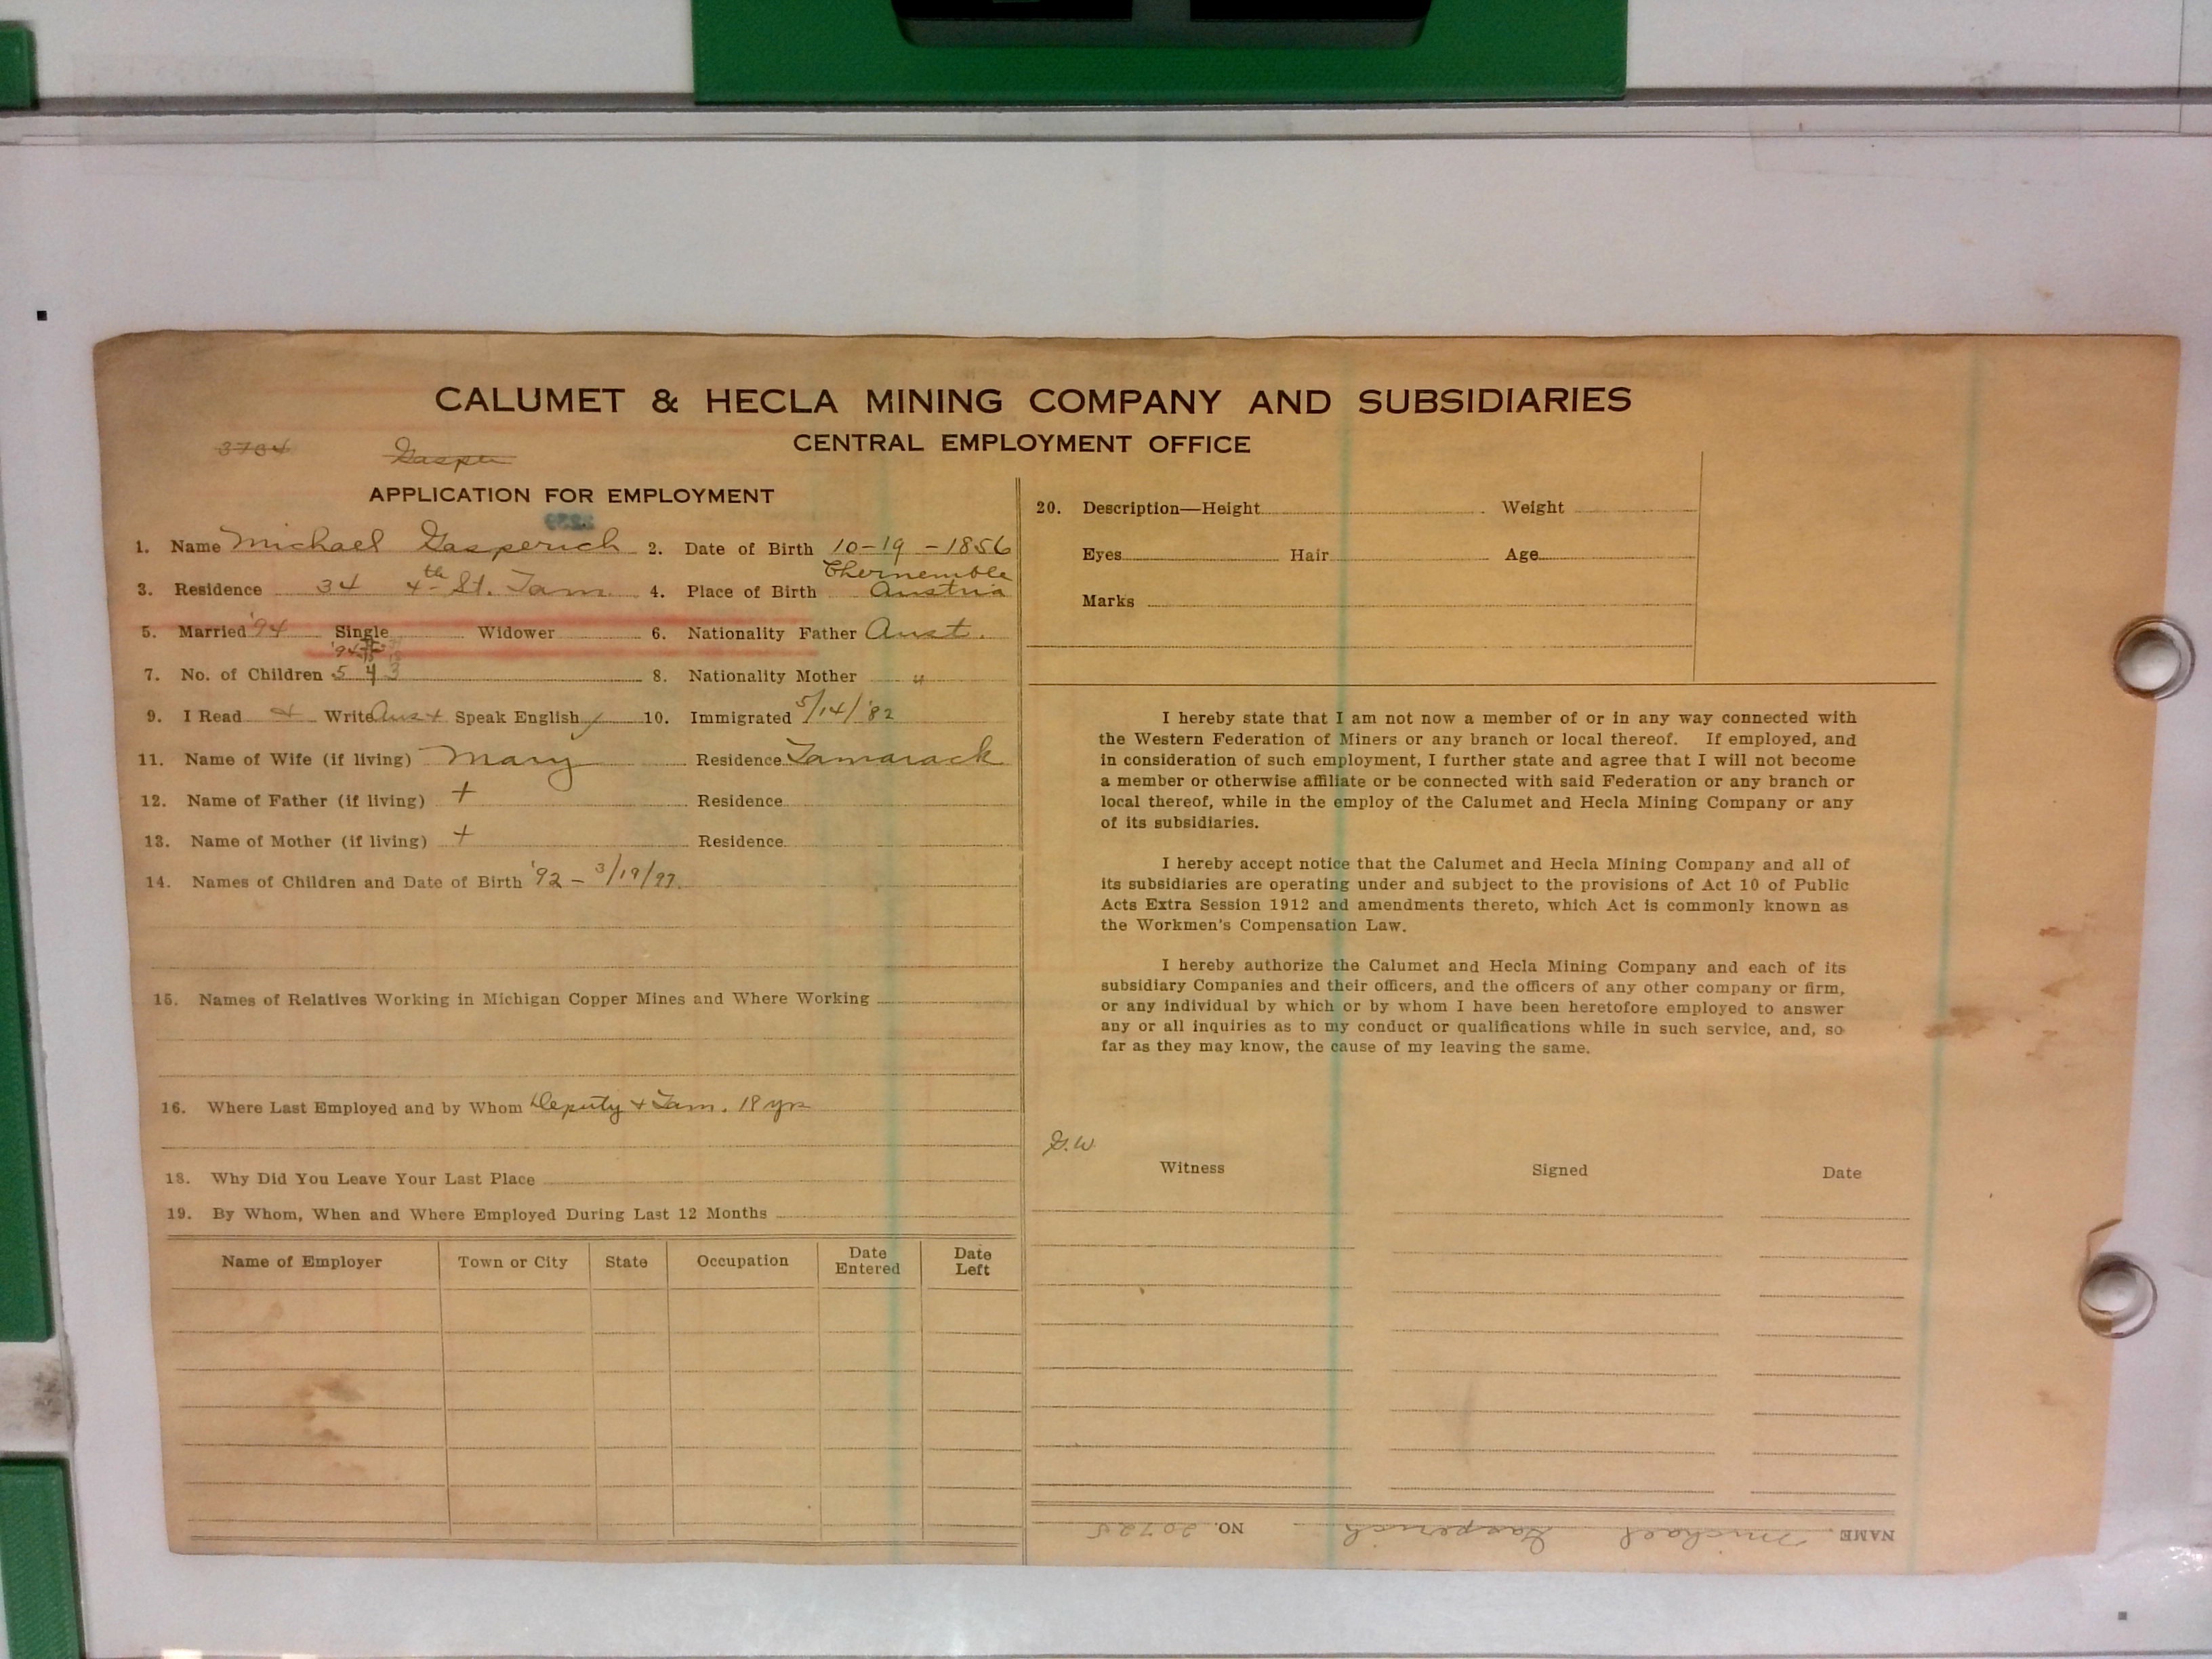 CALUMET & HECLA MINING COMPANY AND SUBSIDIARIES
CENTRAL EMPLOYMENT OFFICE
3704 Gasper
APPLICATION FOR EMPLOYMENT
1. Name Michael Gasperich 2. Date of Birth 10-19-1856
3. Residence 34 4th St. Tam. 4. Place of Birth Chernemble Austria
5. Married '94 Single Widower 6. Nationality Father Aust.
7. No. of Children 5 4 3 8. Nationality Mother "
9. I Read + Write Aust Speak English / 10. Immigrated 5/14/'82
11. Name of Wife (if living) Mary Residence Tamarack
12. Name of Father (if living) + Residence
13. Name of Mother (if living) + Residence
14. Names of Children and Date of Birth '92 - 3/19/97.
15. Names of Relatives Working in Michigan Copper Mines and Where Working
16. Where Last Employed and by Whom Deputy + Tam. 18 yrs
18. Why Did You Leave Your Last Place
19. By Whom, When and Where Employed During Last 12 Months
Name of Employer Town or City State Occupation Date Entered Date Left
20. Description—Height Weight
Eyes Hair Age
Marks
I hereby state that I am not now a member of or in any way connected with
the Western Federation of Miners or any branch or local thereof. If employed, and
in consideration of such employment, I further state and agree that I will not become
a member or otherwise affiliate or be connected with said Federation or any branch or
local thereof, while in the employ of the Calumet and Hecla Mining Company or any
of its subsidiaries.
I hereby accept notice that the Calumet and Hecla Mining Company and all of
its subsidiaries are operating under and subject to the provisions of Act 10 of Public
Acts Extra Session 1912 and amendments thereto, which Act is commonly known as
the Workmen's Compensation Law.
I hereby authorize the Calumet and Hecla Mining Company and each of its
subsidiary Companies and their officers, and the officers of any other company or firm,
or any individual by which or by whom I have been heretofore employed to answer
any or all inquiries as to my conduct or qualifications while in such service, and, so
far as they may know, the cause of my leaving the same.
G.W.
Witness Signed Date
NAME Michael Gasperich NO. 20725